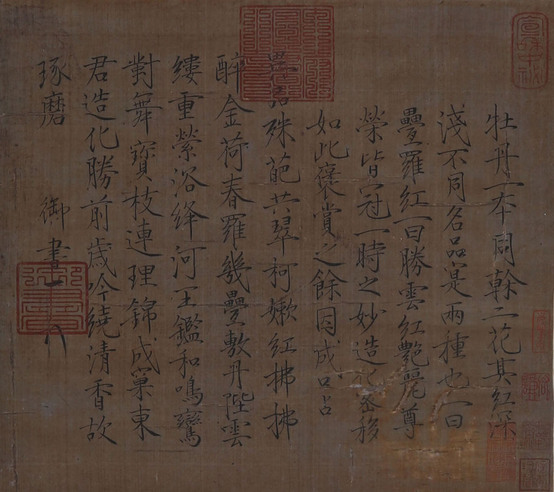 牡丹一本同榦二花其紅深
淺不同名品寔兩種也一曰
疊羅紅一曰勝雲紅艷麗尊
榮皆冠一時之妙造化密移
如此褒賞之餘因成口占
異品殊葩共翠柯嫩紅拂拂
醉金荷春羅幾疊敷丹陛雲
縷重縈浴絳河玉鑑和鳴鸞
對舞寶枝連理錦成窠東
君造化勝前歲吟繞清香故
琢磨
御書